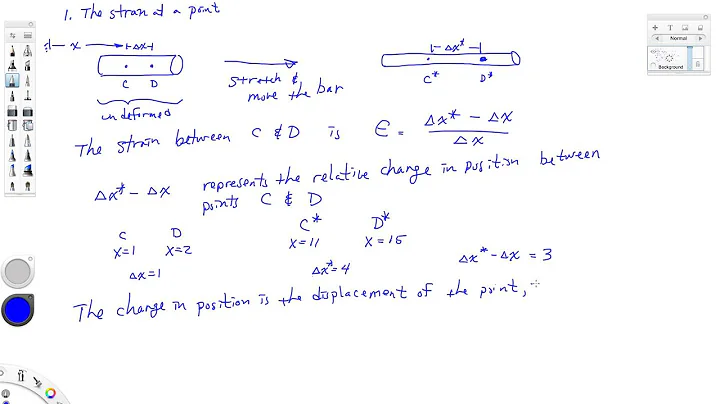 1. The strain at a point
x
Δx
C D
undeformed
stretch &
move the bar
Δx*
C* D*
The strain between C & D is ϵ = (Δx* - Δx) / Δx
Δx* - Δx represents the relative change in position between
points C & D
C D C* D*
x=1 x=2 x=11 x=15
Δx=1 Δx*=4 Δx* - Δx = 3
The change in position is the displacement of the point,
Normal
Background